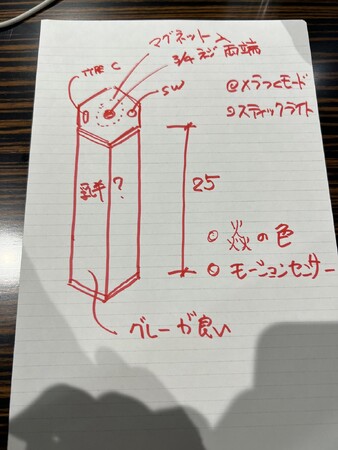 マグネット入
3/4ネジ 両端
TYPE C
SW
@メラつくモード
スティックライト
乳半?
25
炎の色
モーションセンサー
グレーが良い